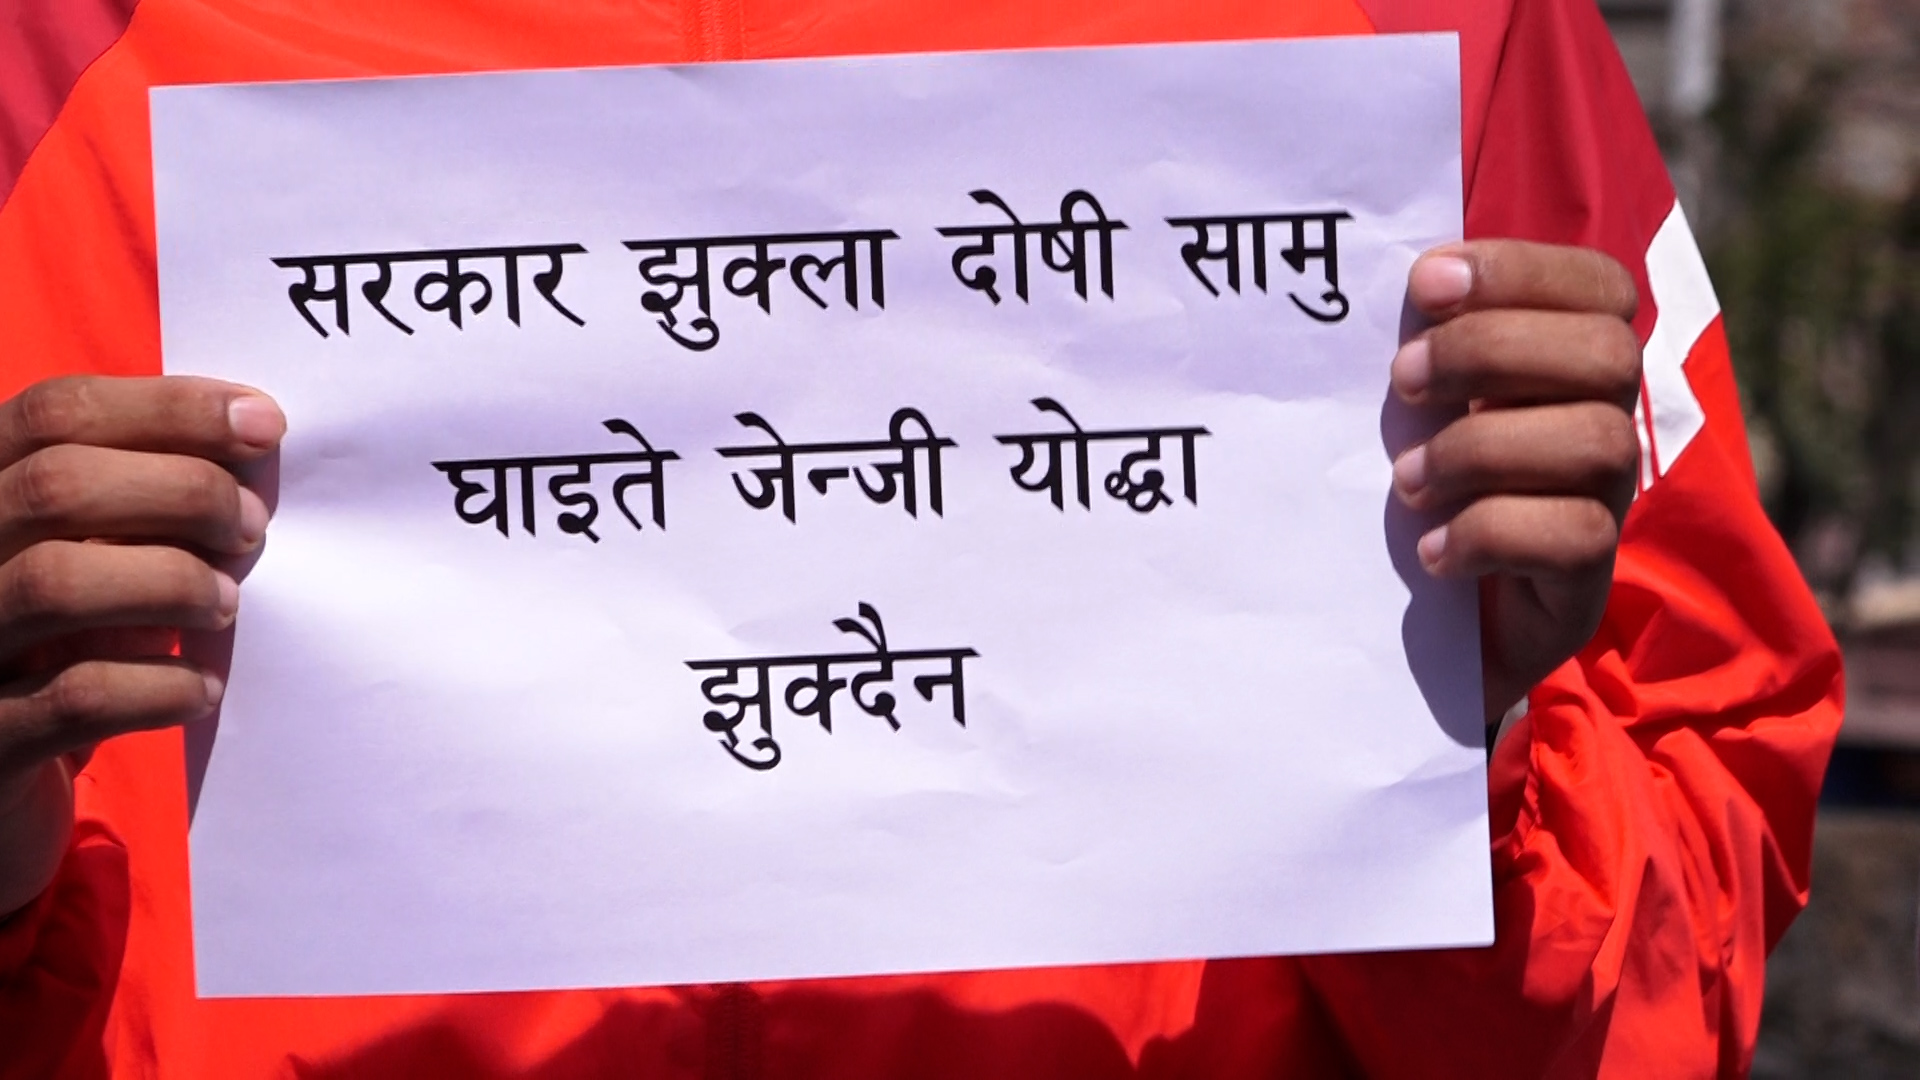 सरकार झुक्ला दोषी सामु
घाइते जेन्जी योद्धा
झुक्दैन